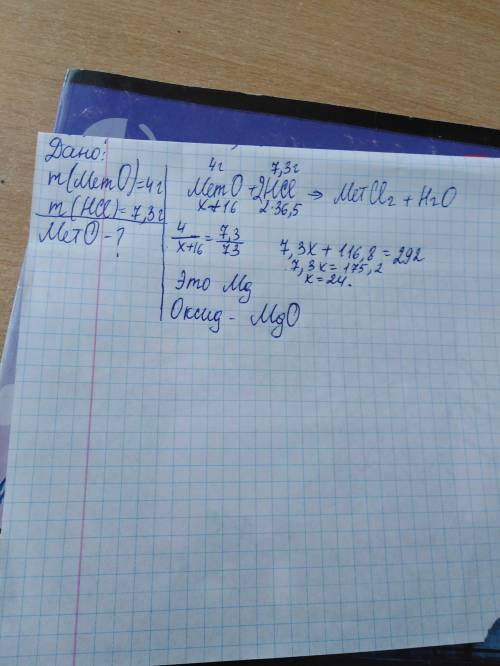 Дано:
m(MemO)=4г
m(HCl)=7,3г
MetO - ?
4г 7,3г
MemO + 2HCl ⇒ MetCl₂ + H₂O
x+16 2·36,5
4/x+16 = 7,3/73
7,3x + 116,8 = 292
7,3x = 175,2
x = 24.
Это Mg
Оксид - MgO